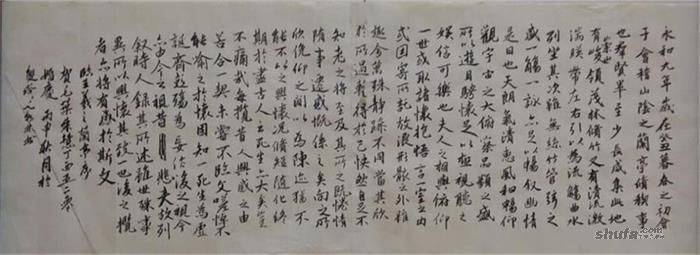 永和九年歲在癸丑暮春之初會
于會稽山陰之蘭亭脩稧事
也群賢畢至少長咸集此地
有峻領茂林脩竹又有清流激
崇山
湍暎帶左右引以為流觴曲水
列坐其次雖無絲竹管弦之
盛一觴一詠亦足以暢叙幽情
是日也天朗氣清惠風和暢仰
觀宇宙之大俯察品類之盛
所以遊目騁懷足以極視聽之
娛信可樂也夫人之相與俯仰
一世或取諸懷抱悟言一室之內
或因寄所託放浪形骸之外雖
趣舍萬殊靜躁不同當其欣
於所遇暫得於己怏然自足不
知老之將至及其所之既惓情
隨事遷感慨係之矣向之所
欣俛仰之間以為陳迹猶不
能不以之興懷況脩短隨化終
期於盡古人云死生亦大矣豈
不痛哉每攬昔人興感之由
若合一契未嘗不臨文嗟悼不
能喻之於懷固知一死生為虛
誕齊彭殤為妄作後之視今
亦由今之視昔悲夫故列
叙時人錄其所述雖世殊事
異所以興懷其致一也後之攬
者亦將有感於斯文
臨王羲之蘭亭序
shufa.com